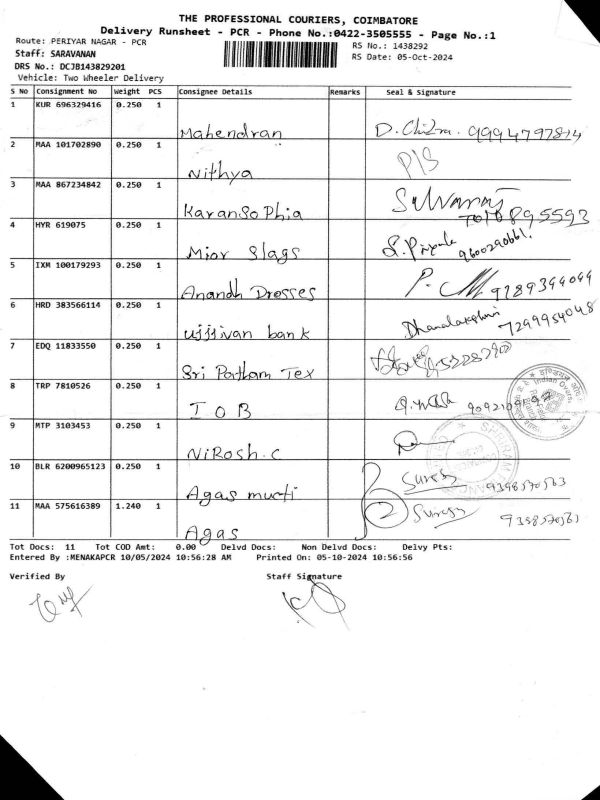 THE PROFESSIONAL COURIERS, COIMBATORE
Delivery Runsheet - PCR - Phone No.:0422-3505555 - Page No.:1
Route: PERIYAR NAGAR - PCR
RS No.: 1438292
Staff: SARAVANAN
RS Date: 05-Oct-2024
DRS No.: DCJB143829201
Vehicle: Two Wheeler Delivery
S No Consignment No Weight PCS Consignee Details Remarks Seal & Signature
1 KUR 696329416 0.250 1 Mahendran D. Chitra. 9994797814
2 MAA 101702890 0.250 1 Nithya P/S
3 MAA 867234842 0.250 1 Karansophia Selvaraj 7010895593
4 HYR 619075 0.250 1 Mior Slags S. Priyanka 9600290661
5 IXM 100179293 0.250 1 Anandh Drosses 9789394099
6 HRD 383566114 0.250 1 ujjivan bank Dhanalakshmi 7299954048
7 EDQ 11833550 0.250 1 Sri Patham Tex
8 TRP 7810526 0.250 1 I O B
9 MTP 3103453 0.250 1 NiRosh.C
10 BLR 6200965123 0.250 1 Agas murti Suresh 9398570563
11 MAA 575616389 1.240 1 Agas 2 Suresh 9398570563
Tot Docs: 11 Tot COD Amt: 0.00 Delvd Docs: Non Delvd Docs: Delvy Pts:
Entered By :MENAKAPCR 10/05/2024 10:56:28 AM Printed On: 05-10-2024 10:56:56
Verified By Staff Signature